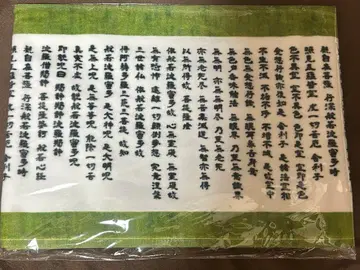 観自在菩薩 行深般若波羅蜜多時
照見五蘊皆空 度一切苦厄 舎利子
色不異空 空不異色 色即是空 空即是色
受想行識亦復如是 舎利子 是諸法空相
不生不滅 不垢不浄 不増不減 是故空中
無色 無受想行識 無眼耳鼻舌身意
無色声香味触法 無眼界 乃至無意識界
無無明 亦無無明尽 乃至無老死
亦無老死尽 無苦集滅道 無智亦無得
以無所得故 菩提薩埵
依般若波羅蜜多故 心無罣礙 無罣礙故
無有恐怖 遠離一切顛倒夢想 究竟涅槃
三世諸仏 依般若波羅蜜多故
得阿耨多羅三藐三菩提 故知
般若波羅蜜多 是大神呪 是大明呪
是無上呪 是無等等呪 能除一切苦
真実不虚 故説般若波羅蜜多呪
即説呪曰 羯諦羯諦 波羅羯諦
波羅僧羯諦 菩提薩婆訶 般若心経
観自在菩薩 行深般若波羅蜜多時
照見五蘊皆空 度一切苦厄 舎利子